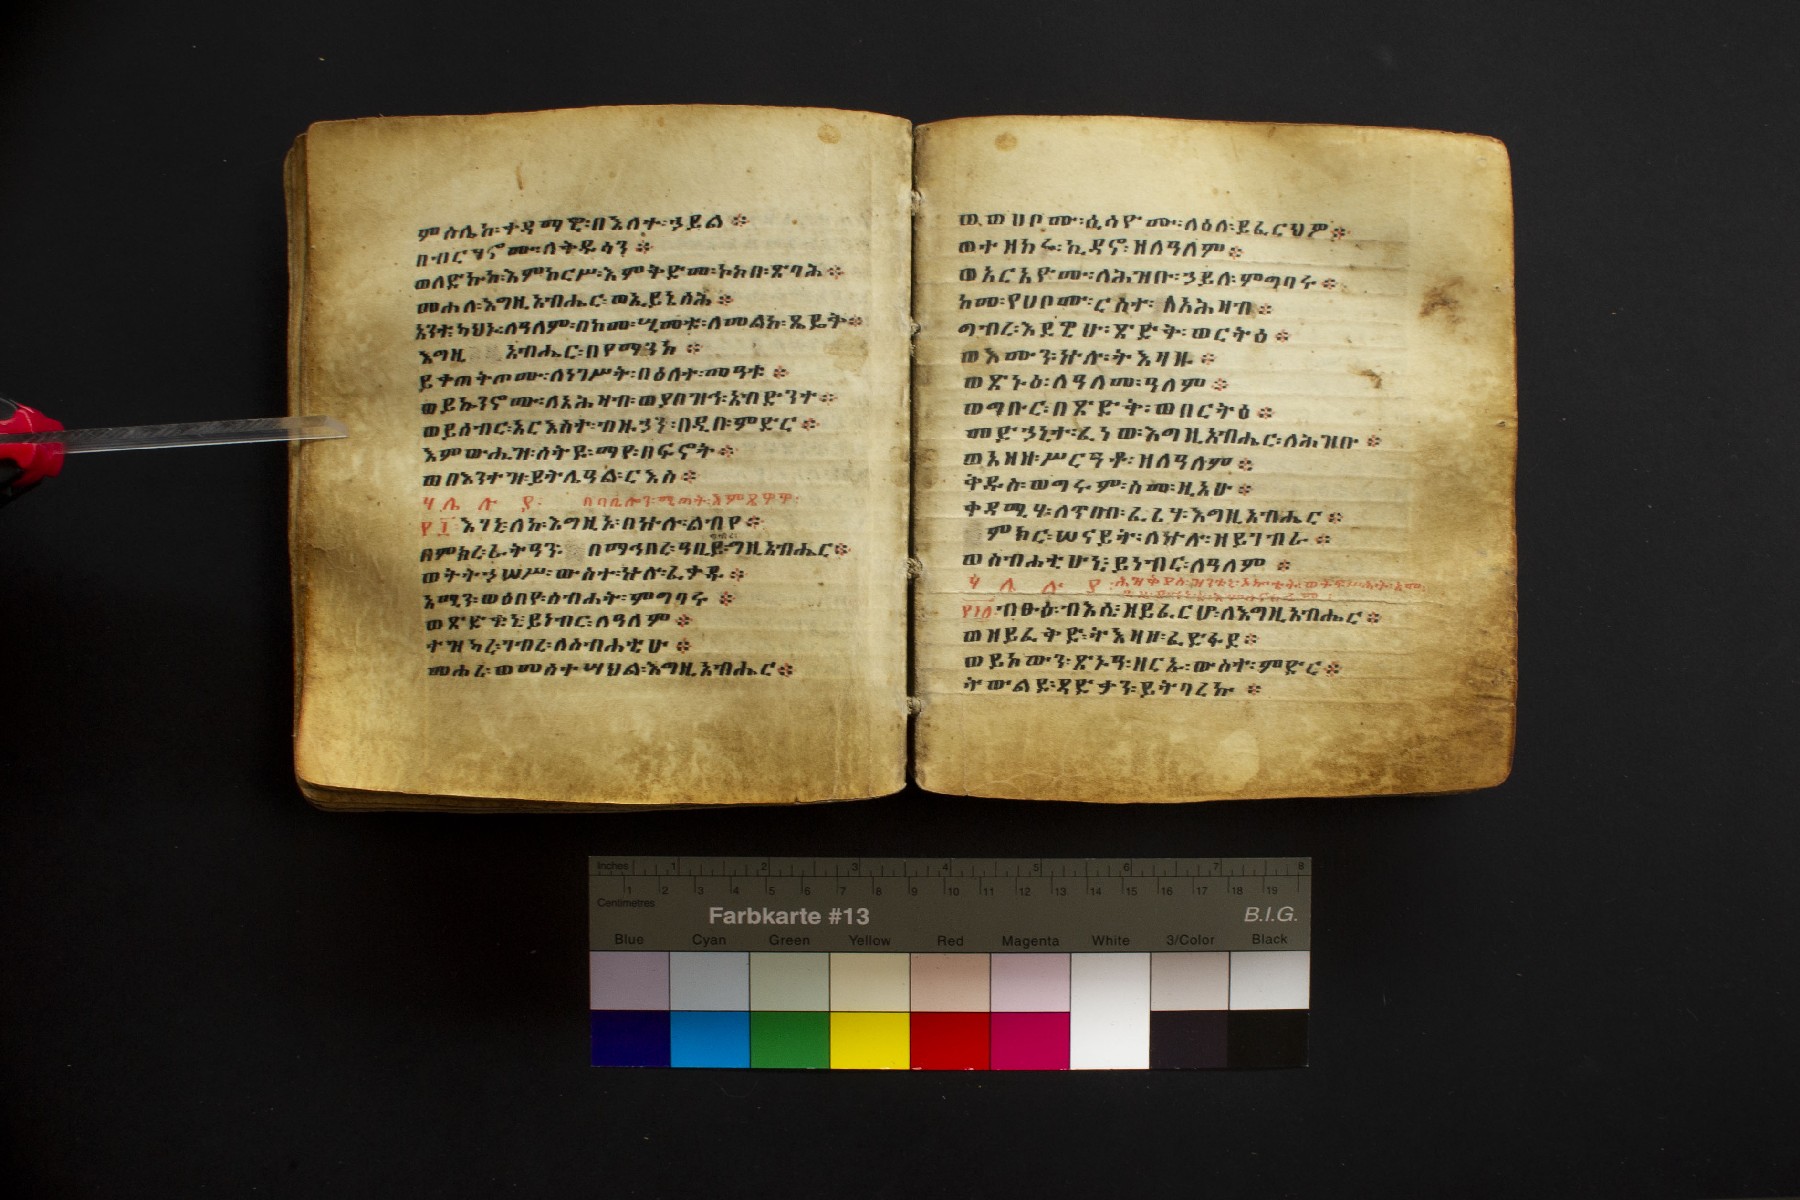 ምስሌከ፡ቀዳማዊ፡በእለተ፡ኃይል፨
በብርሃኖሙ፡ለቅዱሳን፨
ወለድኩከ፡እምከርሥ፡እምቅድመ፡ኮከበ፡ጽባሕ፨
መሐለ፡እግዚአብሔር፡ወኢይኔስሕ፨
አንተ፡ካህኑ፡ለዓለም፡በከመ፡ሢመቱ፡ለመልከ፡ጼዴቅ፨
እግዚ አብሔር፡በየማንከ፨
ይቀጠቅጦሙ፡ለነገሥት፡በዕለተ፡መዓቱ፨
ወይኴንኖሙ፡ለአሕዛብ፡ወያበዝኅ፡አብድንተ፨
ወይሰብር፡አርእስተ፡ብዙኃን፡በዲበ፡ምድር፨
እምውሒዝ፡ሰትየ፡ማየ፡በፍኖት፨
ወበእንተዝ፡ይትሌዓል፡ርእስ፨
ሃ ሌ ሉ ያ፡
፻፲ እገኒ፡ለከ፡እግዚኦ፡በኵሉ፡ልብየ፨
በምክረ፡ራትዓን፡ በማኅበረ፡ ዓቢይ፡ግብረ፡እግዚአብሔር፨
ወትትኃሠሥ፡ውስተ፡ኵሉ፡ፈቃዱ፨
አሚን፡ወዕበየ፡ስብሐት፡ምግባሩ፨
ወጽድቁኒ፡ይነብር፡ለዓለም፨
ተዝካረ፡ገብረ፡ለስብሐቲሁ፨
መሐሪ፡ወመስተሣህል፡እግዚአብሔር፨
ወወሀቦሙ፡ሲሳዮሙ፡ለዕለ፡ይፈርህዎ፨
ወተዘከረ፡ኪዳኖ፡ዘለዓለም፨
ወአርአዮሙ፡ለሕዝቡ፡ኃይለ፡ምግባሩ፨
ከመ፡የሀቦሙ፡ርስተ፡ ለአሕዛብ፨
ግብረ፡እደዊሁ፡ጽድቅ፡ወርትዕ፨
ወእሙን፡ኵሉ፡ትእዛዙ፨
ወጽኑዕ፡ለዓለመ፡ዓለም፨
ወግቡር፡በጽድቅ፡ወበርትዕ፨
መድኃኒተ፡ፈነወ፡እግዚአብሔር፡ለሕዝቡ፨
ወአዘዘ፡ሥርዓቶ፡ዘለዓለም፨
ቅዱስ፡ወግሩም፡ስሙ፡ዚአሁ፨
ቀዳሚሃ፡ለጥበብ፡ፈሪሃ፡እግዚአብሔር፨
ምክር፡ሠናይት፡ለኵሉ፡ዘይገብራ፨
ወስብሐቲሁኒ፡ይነብር፡ለዓለም፨
ሃ ሌ ሉ ያ፡
፻፲፩፡ብፁዕ፡ብእሲ፡ዘይፈርሆ፡ለእግዚአብሔር፨
ወዘይፈቅድ፡ትእዛዞ፡ፈድፋደ፨
ወይከውን፡ጽኑዓ፡ዘርኡ፡ውስተ፡ምድር፨
ትውልደ፡ጻድቃን፡ይትባረኩ፨
Inches 1 2 3 4 5 6 7 8
1 2 3 4 5 6 7 8 9 10 11 12 13 14 15 16 17 18 19
Centimetres
Farbkarte #13 B.I.G.
Blue Cyan Green Yellow Red Magenta White 3/Color Black